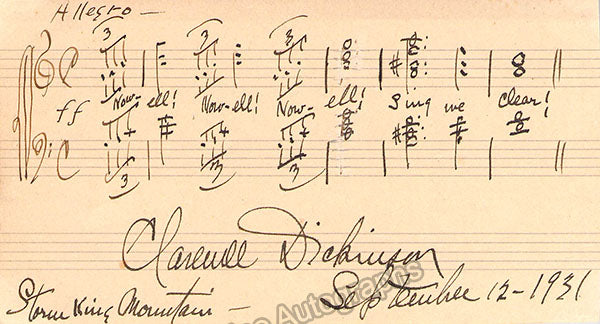 Allegro —
3 3 3
ff Now-ell! Now-ell! Now-ell! Sing we clear!
3 3 3
Clarence Dickinson
Storm King Mountain — September 12 - 1931
Autographs